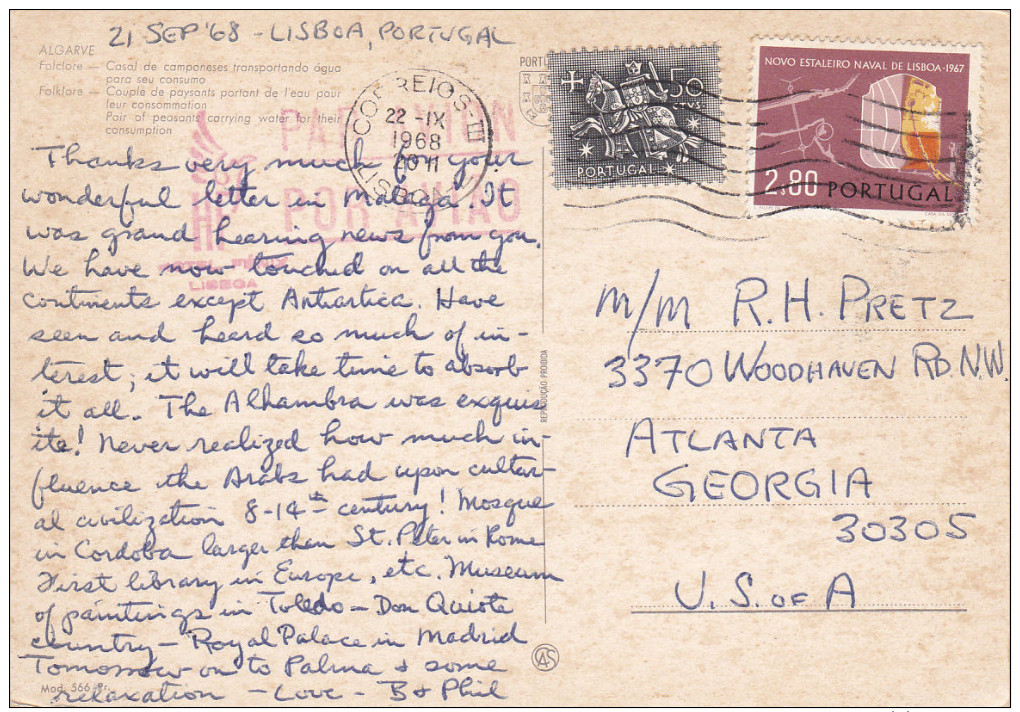 21 SEP '68 - LISBOA, PORTUGAL
ALGARVE
Folclore — Casal de camponeses transportando água
para seu consumo
Folklore — Couple de paysants portant de l'eau pour
leur consommation
Pair of peasants carrying water for their
consumption
Thanks very much for your
wonderful letter in Malaga. It
was grand hearing news from you.
We have now touched on all the
continents except Antartica. Have
seen and heard so much of in-
terest; it will take time to absorb
it all. The Alhambra was exquis
ite! Never realized how much in-
fluence the Arabs had upon cultur-
al civilization 8-14th century! Mosque
in Cordoba larger than St. Peter in Rome
First library in Europe, etc. Museum
of paintings in Toledo — Don Quiote
country — Royal Palace in Madrid
Tomorrow on to Palma & some
relaxation — Love - B & Phil
Mod. 566
PAR AVION
POR AVIÃO
HOTEL
LISBOA
CORREIOS
22 -IX
1968
LISBOA
REPRODUÇÃO PROIBIDA
CAS
PORTU
50
CTVS
PORTUGAL
NOVO ESTALEIRO NAVAL DE LISBOA-1967
2.80 PORTUGAL
M/M R.H. PRETZ
3370 WOODHAVEN RD. N.W.
ATLANTA
GEORGIA
30305
U.S. OF A